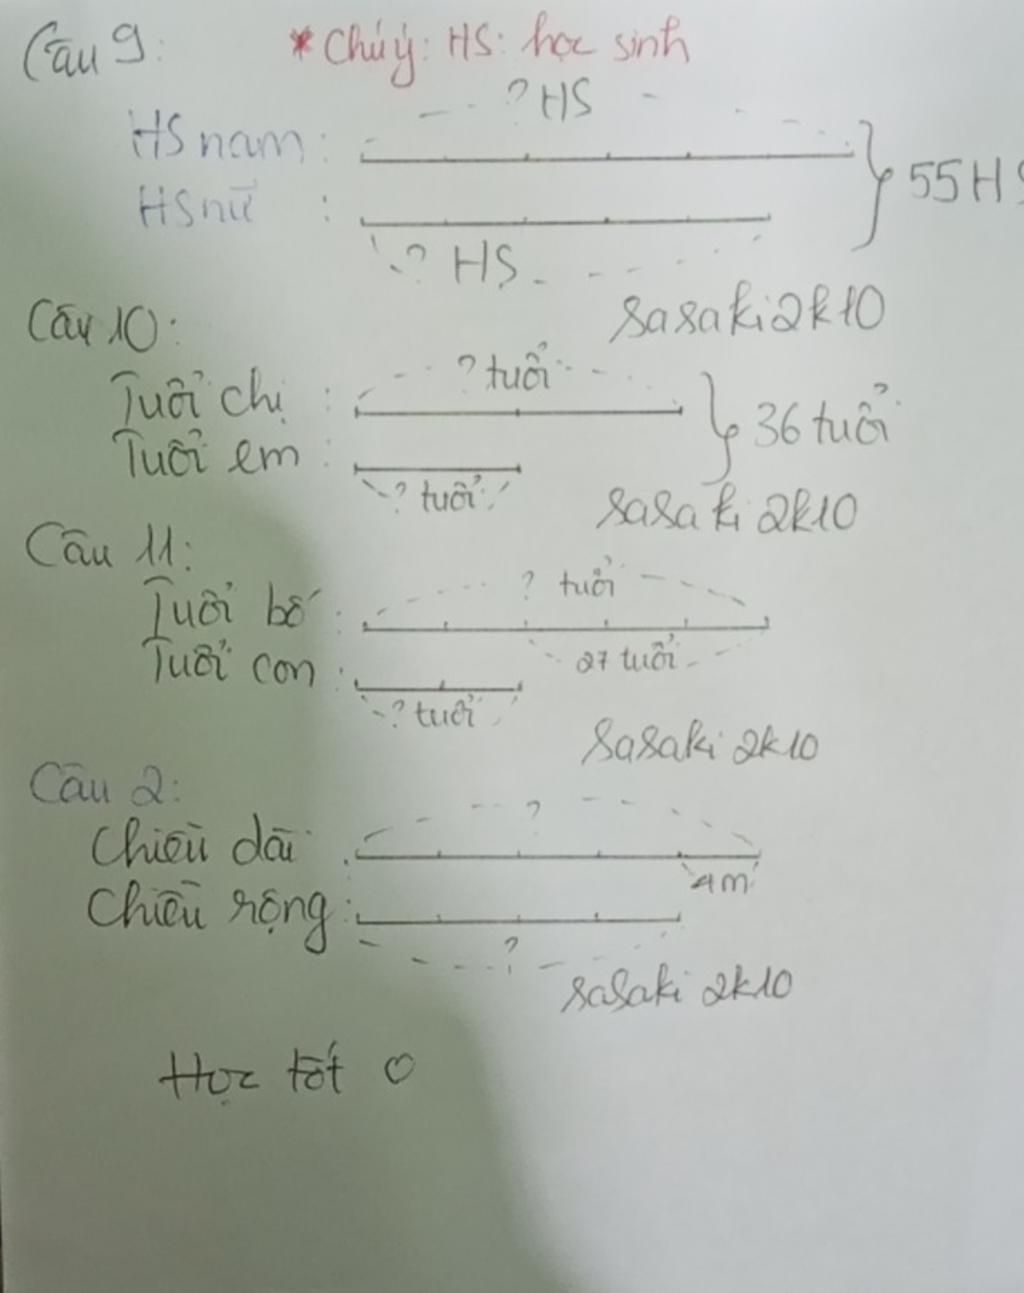 Câu 9:
* Chú ý: HS: học sinh
? HS
HS nam:
55HS
HS nữ :
? HS
sasaki2k10
Câu 10:
? tuổi
Tuổi chị :
36 tuổi
Tuổi em :
? tuổi
sasaki 2k10
Câu 11:
? tuổi
Tuổi bố :
27 tuổi
Tuổi con :
? tuổi
sasaki 2k10
Câu 2:
?
Chiều dài :
4m
Chiều rộng :
?
sasaki 2k10
Học tốt ♡